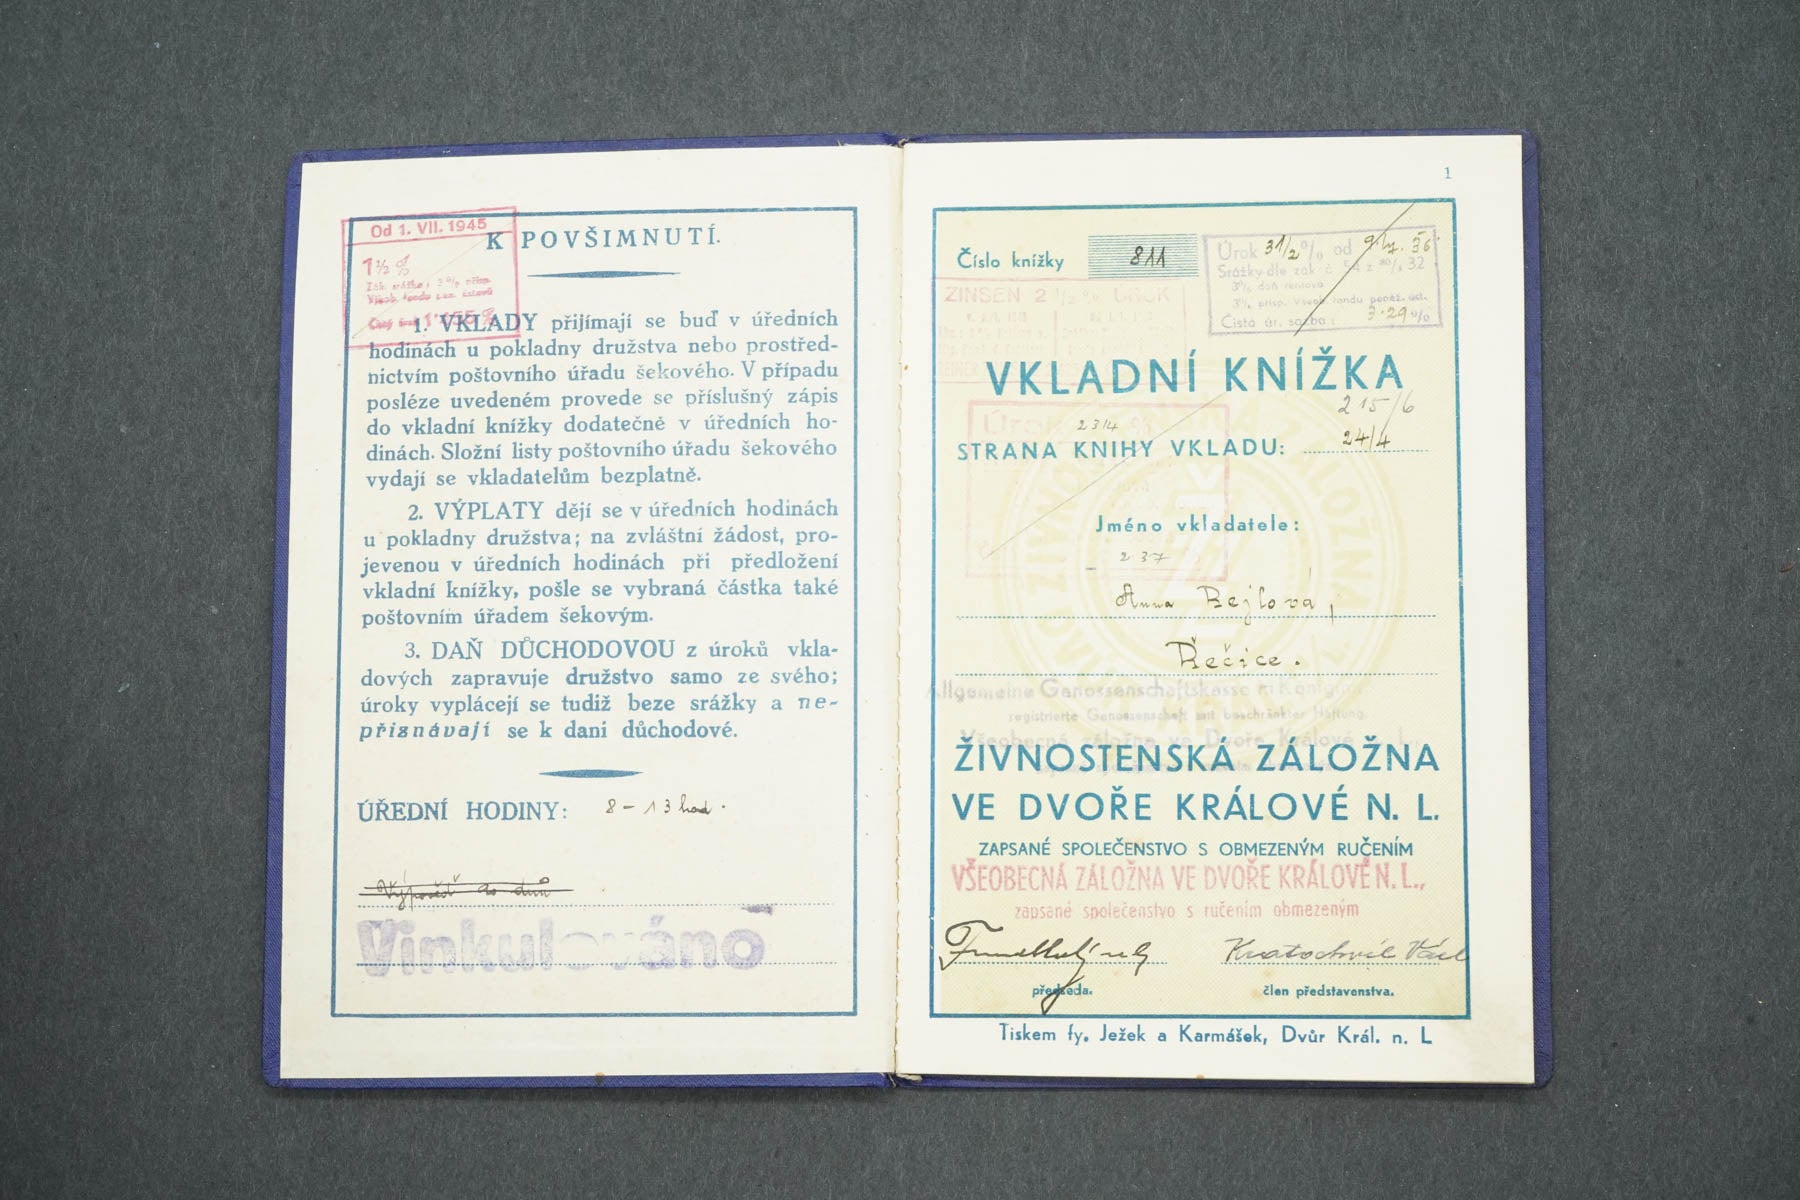 Od 1. VII. 1945
1½ %
K POVŠIMNUTÍ.
1. VKLADY přijímají se buď v úředních
hodinách u pokladny družstva nebo prostřed-
nictvím poštovního úřadu šekového. V případu
posléze uvedeném provede se příslušný zápis
do vkladní knížky dodatečně v úředních ho-
dinách. Složní listy poštovního úřadu šekového
vydají se vkladatelům bezplatně.
2. VÝPLATY dějí se v úředních hodinách
u pokladny družstva; na zvláštní žádost, pro-
jevenou v úředních hodinách při předložení
vkladní knížky, pošle se vybraná částka také
poštovním úřadem šekovým.
3. DAŇ DŮCHODOVOU z úroků vkla-
dových zapravuje družstvo samo ze svého;
úroky vyplácejí se tudíž beze srážky a ne-
přiznávají se k dani důchodové.
ÚŘEDNÍ HODINY: 8 - 13 hod.
Výpověď do dnů
Vinkulováno
1
Číslo knížky 811
Úrok 3 1/2 % od 9./7. 36.
Srážky dle zák. č. 54 z 32
3% daň rentová
3% přísp. všeob. fondu peněž. úst.
Čistá úr. sazba: 3·29 %
ZINSEN 2 1/2 % ÚROK
VKLADNÍ KNÍŽKA
215/6
Úrok
23/4 %
STRANA KNIHY VKLADU: 24/4
Jméno vkladatele:
237
Anna Rejlová,
Řečice.
Allgemeine Genossenschaftskasse in Königin
registrierte Genossenschaft mit beschränkter Haftung.
Všeobecná záložna ve Dvoře Králové n. L.,
ŽIVNOSTENSKÁ ZÁLOŽNA
VE DVOŘE KRÁLOVÉ N. L.
ZAPSANÉ SPOLEČENSTVO S OBMEZENÝM RUČENÍM
VŠEOBECNÁ ZÁLOŽNA VE DVOŘE KRÁLOVÉ N. L.,
zapsané společenstvo s ručením obmezeným
Kratochvíl
předseda. člen představenstva.
Tiskem fy. Ježek a Karmášek, Dvůr Král. n. L